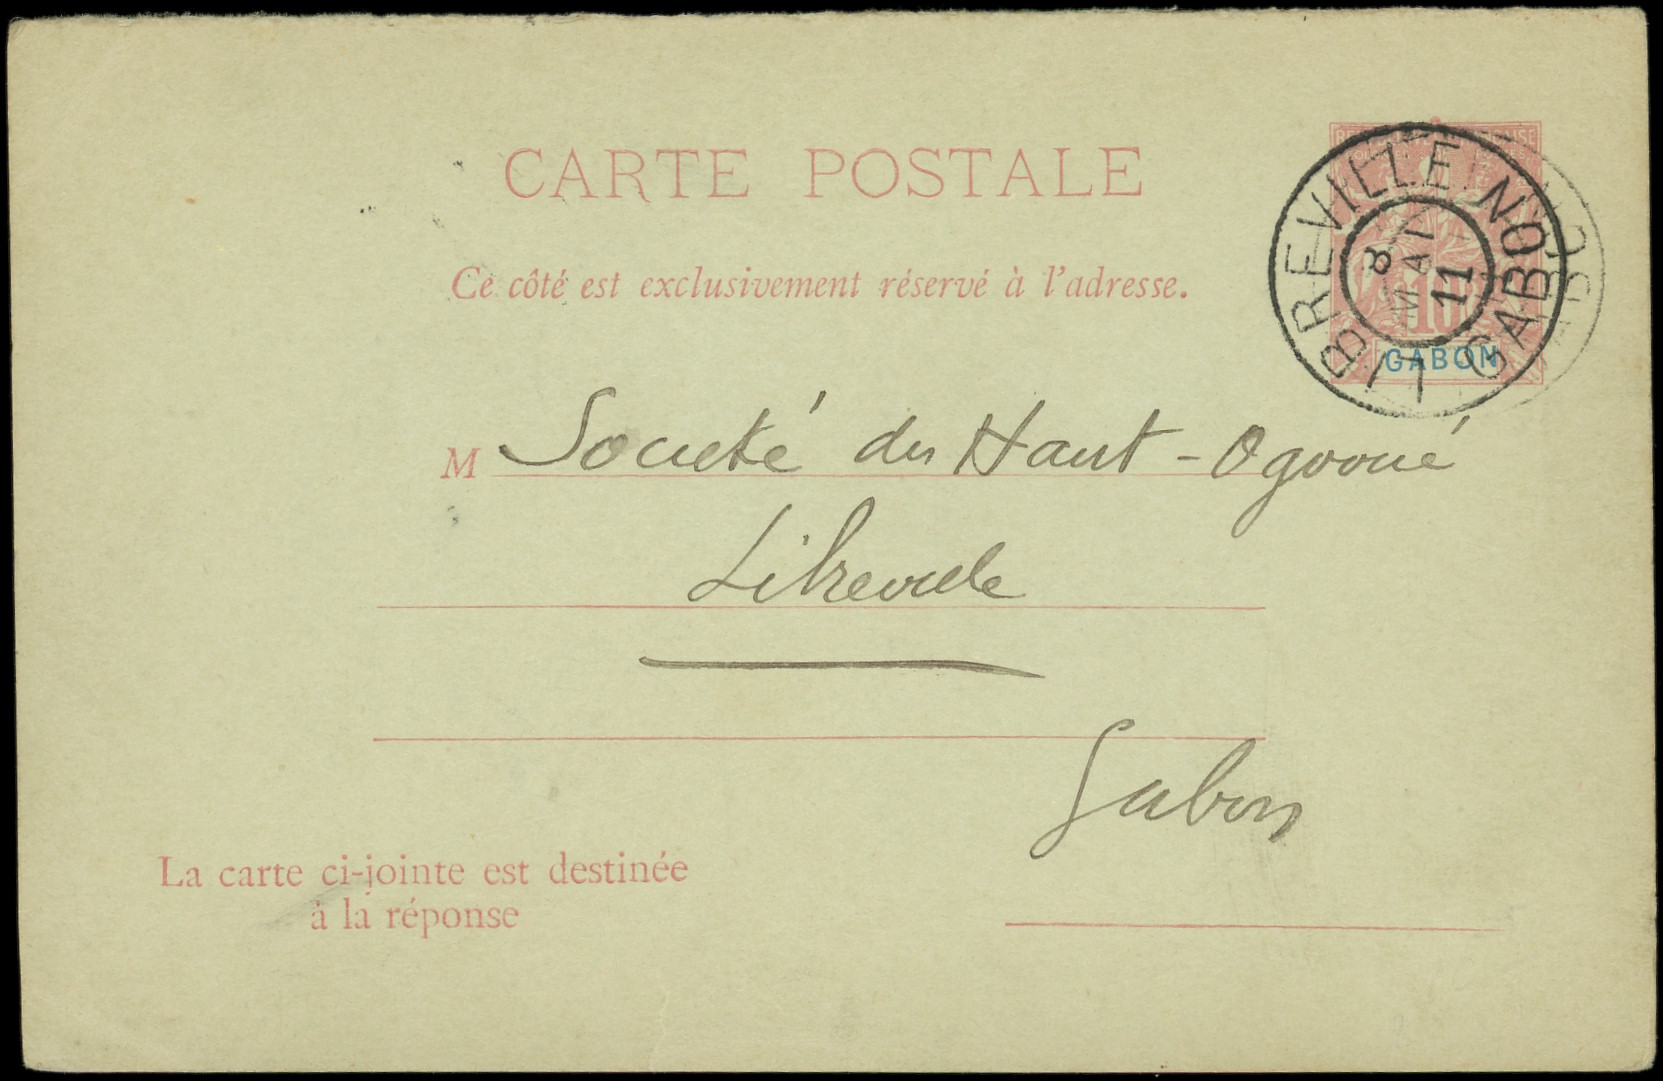 CARTE POSTALE
Ce côté est exclusivement réservé à l'adresse.
LIBREVILLE GABON
8 MAI 11
10
GABON
M Société du Haut-Ogooué
Libreville
Gabon
La carte ci-jointe est destinée
à la réponse